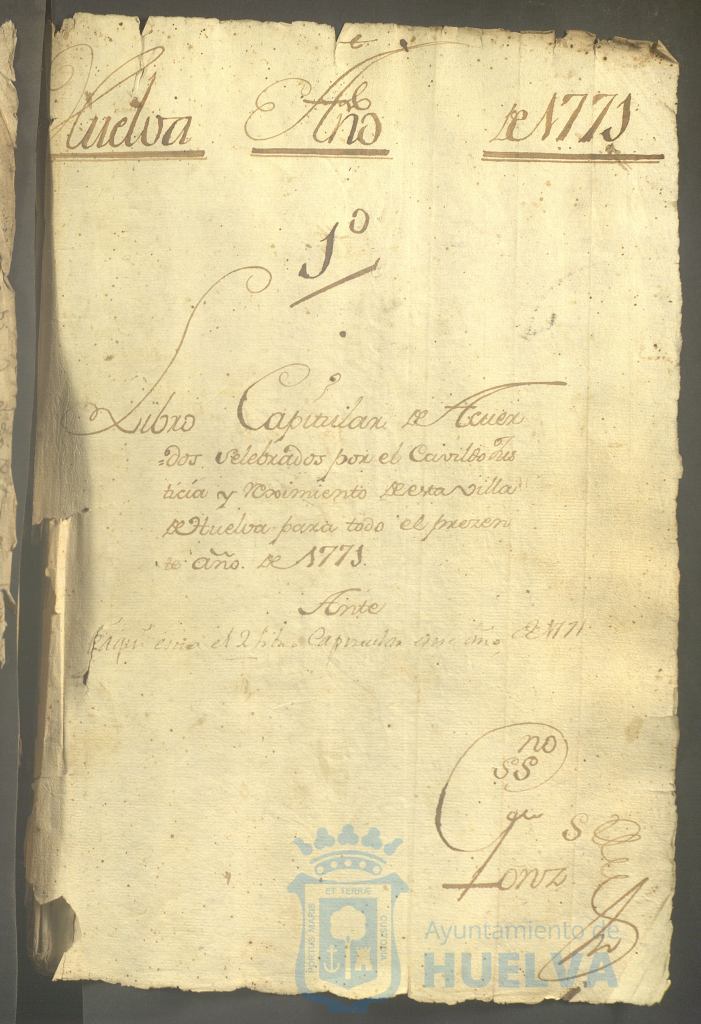 Huelva Año de 1771
1º
Libro Capitular de Acuer
dos Selebrados por el Cavildo Jus
ticia y Reximiento de esta villa
de Huelva para todo el prezen
te año. de 1771.
Ante
el 2 Capitular año de 1771
no
SS
Gonz S
ET TERRÆ
PORTUS MARIS
CUSTODIA
Ayuntamiento de
HUELVA